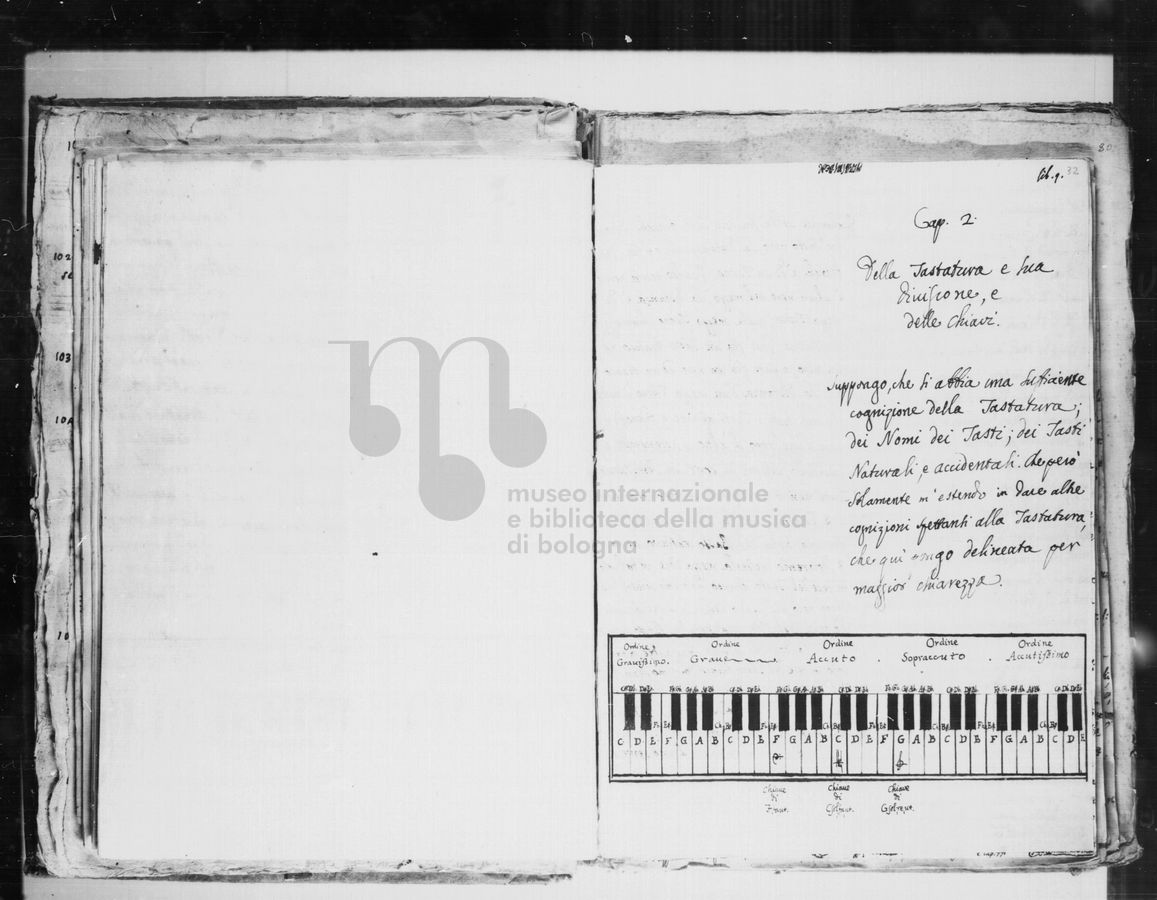 10
102
103
10
80
lib. 9. 32
Cap. 2.
Della Tastatura e sua
divisione, e
delle Chiavi.
Suppongo, che si abbia una sufficiente
cognizione della Tastatura;
dei Nomi dei Tasti; dei Tasti
Naturali, e accidentali. Che però
Solamente m'estendo in dare altre
cognizioni spettanti alla Tastatura,
che quì delineata per
maggior chiarezza.
museo internazionale
e biblioteca della musica
di bologna
Ordine Ordine Ordine Ordine Ordine
Gravissimo. Grave Accuto . Sopraccuto . Accutissimo
C D E F G A B C D E F G A B C D E F G A B C D E F G A B C D E
Chiave Chiave Chiave
di di di
Ffaut. Csolfaut. Gsolreut.